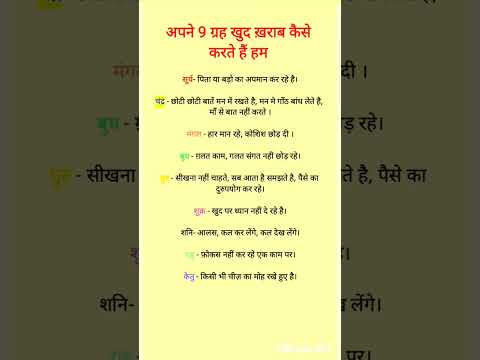 अपने 9 ग्रह खुद ख़राब कैसे
करते हैं हम
सूर्य- पिता या बड़ो का अपमान कर रहे है।
चंद्र - छोटी छोटी बातें मन में रखते है, मन मे गाँठ बांध लेते है,
माँ से बात नहीं करते ।
मंगल - हार मान रहे, कोशिश छोड़ दी ।
बुध - ग़लत काम, गलत संगत नहीं छोड़ रहे।
गुरु - सीखना नहीं चाहते, सब आता है समझते है, पैसे का
दुरुपयोग कर रहे।
शुक्र - खुद पर ध्यान नहीं दे रहे है।
शनि- आलस, कल कर लेंगे, कल देख लेंगे।
राहु - फ़ोकस नहीं कर रहे एक काम पर।
केतु - किसी भी चीज़ का मोह रखे हुए है।